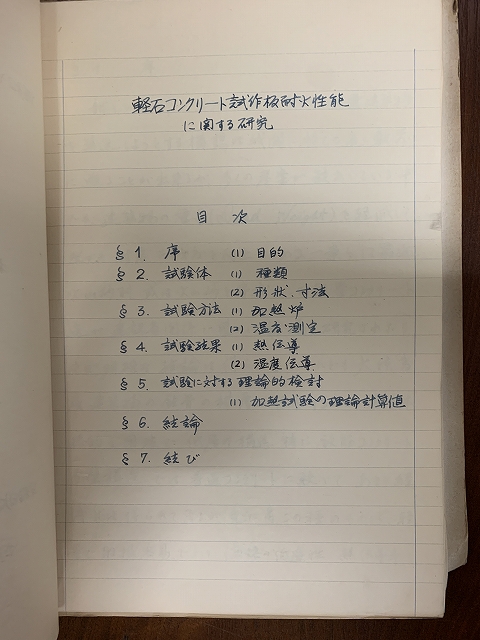 軽石コンクリート試作板耐火性能
に関する研究
目 次
§1. 序 (1) 目的
§2. 試験体 (1) 種類
(2) 形状、寸法
§3. 試験方法 (1) 加熱炉
(2) 温度測定
§4. 試験結果 (1) 熱伝導
(2) 湿度伝導
§5. 試験に対する理論的検討
(1) 加熱試験の理論計算値
§6. 結論
§7. 結び